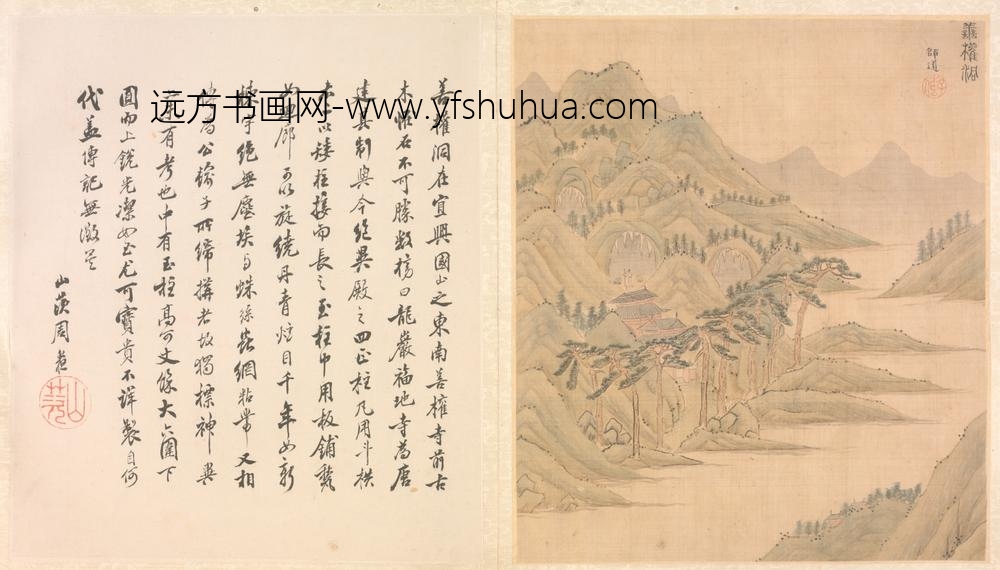 善權洞
邵道
善權洞在宜興國山之東南善權寺前古
木怪石不可勝數榜曰龍巖福地寺為唐
建其制與今絕異殿之四正柱凡用斗栱
以矮柱接而長之玉柱中用板鋪
廊可以旋繞丹青炫目千年如新
絕無塵埃與蛛絲蟲網粘帶又相
為公輸子所締搆者故獨標神異
有考也中有玉柱高可丈餘大六圍下
圓而上銳光潔如玉尤可寶貴不詳製自何
代並傳記無徵
山茨周
山茨
远方书画网-www.yfshuhua.com